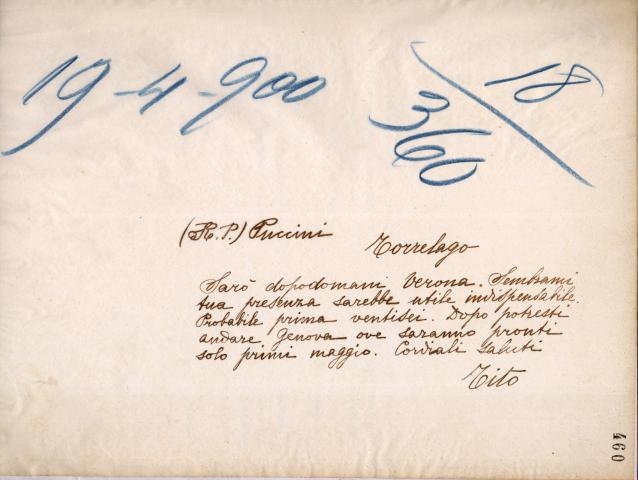 19-4-900
18/360
(R.P.) Puccini
Torrelago
Sarò dopodomani Verona. Sembrami
tua presenza sarebbe utile indispensabile.
Probabile prima ventisei. Dopo potresti
andare Genova ove saranno pronti
solo primi maggio. Cordiali saluti
Tito
460